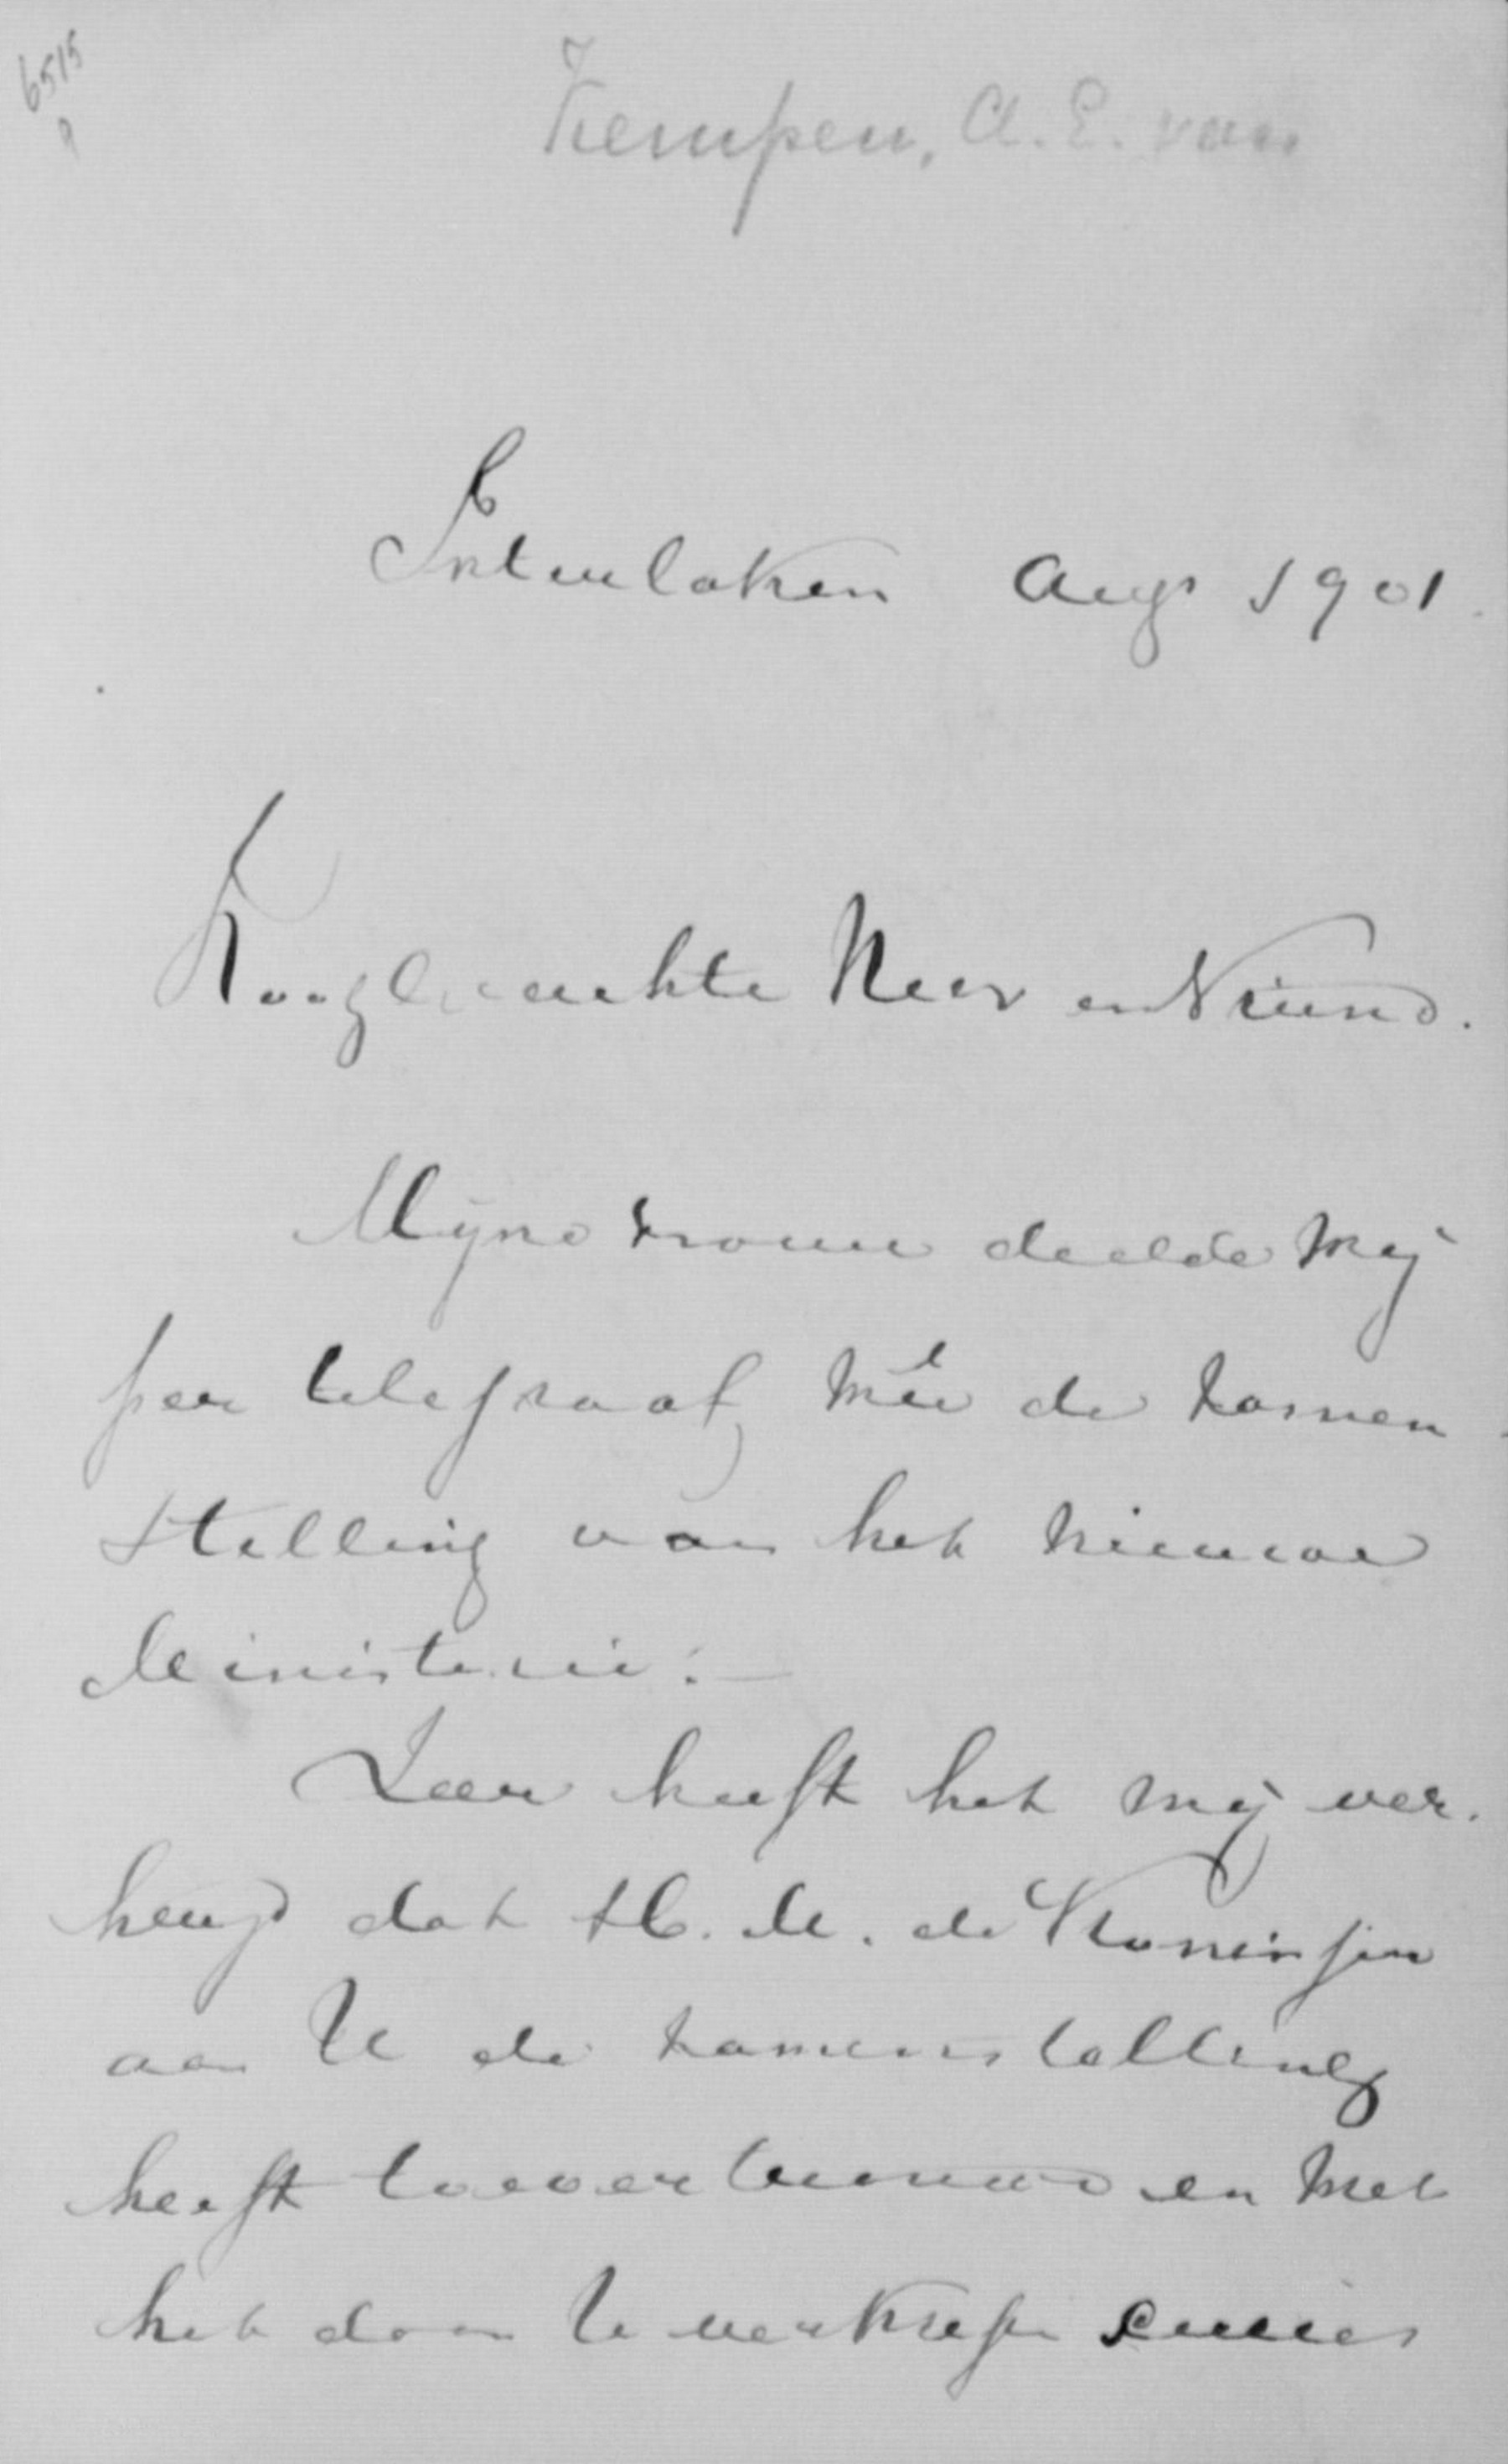 6515
Kempen, A. E. van
Interlaken Aug 1901.
Hooggeachte Heer en Vriend.
Mijne vrouw deelde mij
per telegraaf mée de samen-
stelling van het nieuwe
Ministerie.—
Zeer heeft het mij ver-
heugd dat H. M. de Koningin
aan U de samenstelling
heeft toevertrouwd en met
het door U verkregen succes